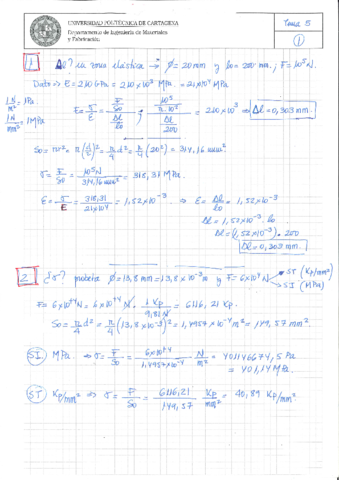 UNIVERSIDAD POLITÉCNICA DE CARTAGENA
Departamento de Ingeniería de Materiales
y Fabricación
Tema 5
1
1 Δl? la zona elástica → ϕ = 20 mm y l0 = 200 mm, F = 10⁵ N.
Dato => E = 210 GPa = 210 x 10³ MPa = 21x10⁴ MPa
1 N/m² = 1 Pa
1 N/mm² = 1 MPa
E = σ/ε = (F/S0)/(Δl/l0); (10⁵/(π·10²))/(Δl/200) = 210·10³ => Δl = 0,303 mm
S0 = πr² = π(d/2)² = π/4 d² = π/4 (20²) = 314,16 mm²
σ = F/S0 = 10⁵N/314,16 mm² = 318,31 MPa
ε = σ/E = 318,31/21x10⁴ = 1,52x10⁻³ => ε = Δl/l0 = 1,52x10⁻³
Δl = 1,52x10⁻³ · l0
Δl = (1,52x10⁻³) · 200
Δl = 0,303 mm
2 ¿σ? probeta ϕ = 13,8 mm = 13,8x10⁻³ m y F = 6x10⁴ N
ST (Kp/mm²)
SI (MPa)
F = 6x10⁴ N = 6x10⁴ N · 1 Kp/9,81 N = 6116,21 Kp
S0 = π/4 d² = π/4 (13,8x10⁻³)² = 1,4957x10⁻⁴ m² = 149,57 mm²
SI MPa => σ = F/S0 = 6x10⁴/1,4957x10⁻⁴ N/m² = 401146674,5 Pa
= 401,14 MPa
ST Kp/mm² => σ = F/S0 = 6116,21/149,57 Kp/mm² = 40,89 Kp/mm²